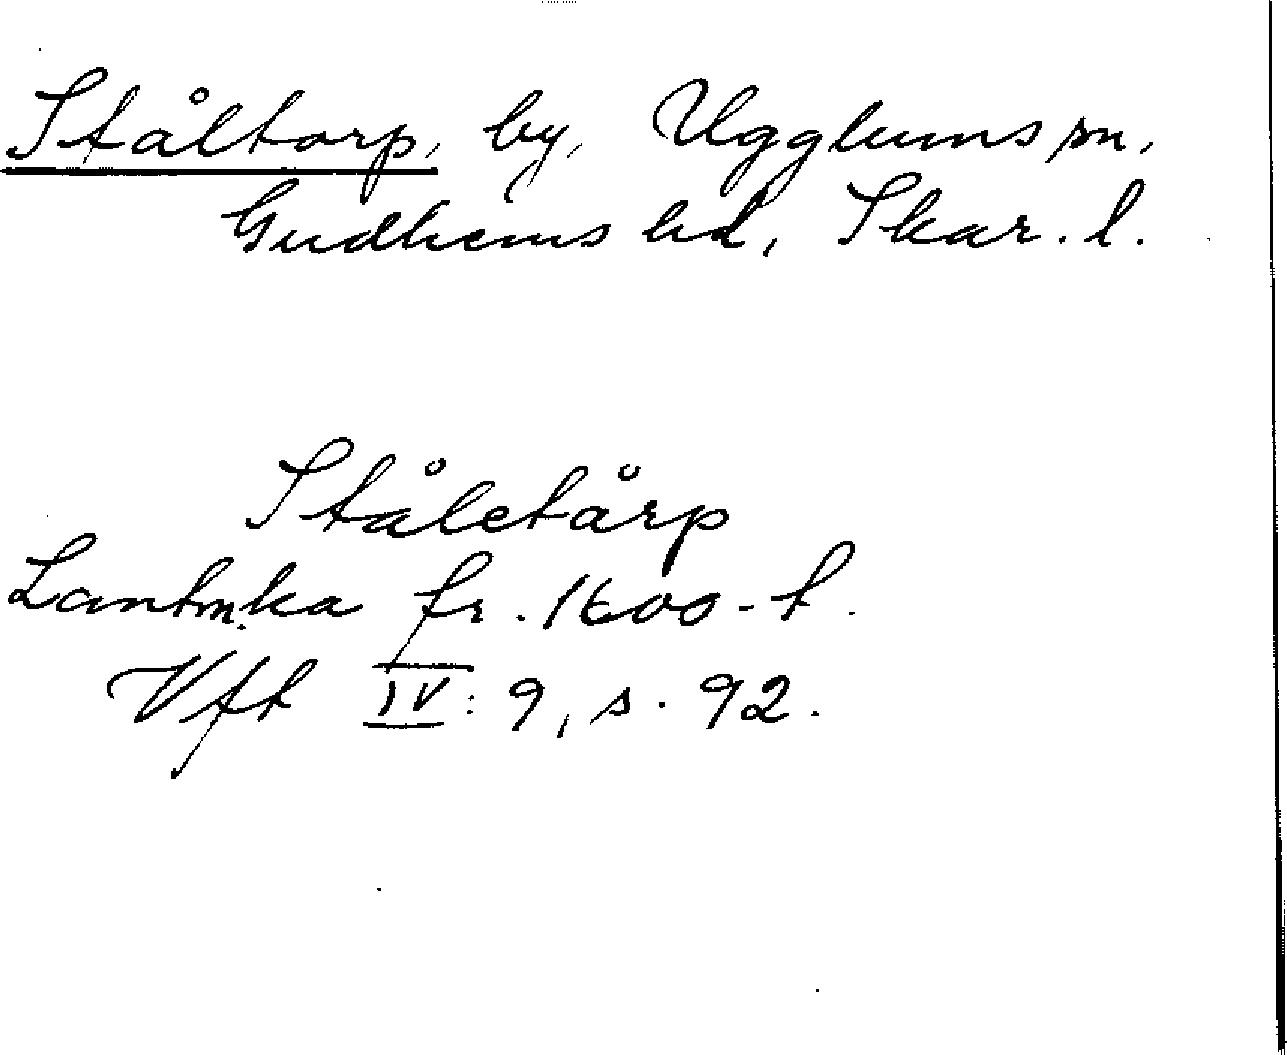 Ståltorp, by, Ugglums sn,
Gudhems hd, Skar. l.
Ståletårp
Lantm.ka fr. 1600-t.
Vft IV: 9, s. 92.